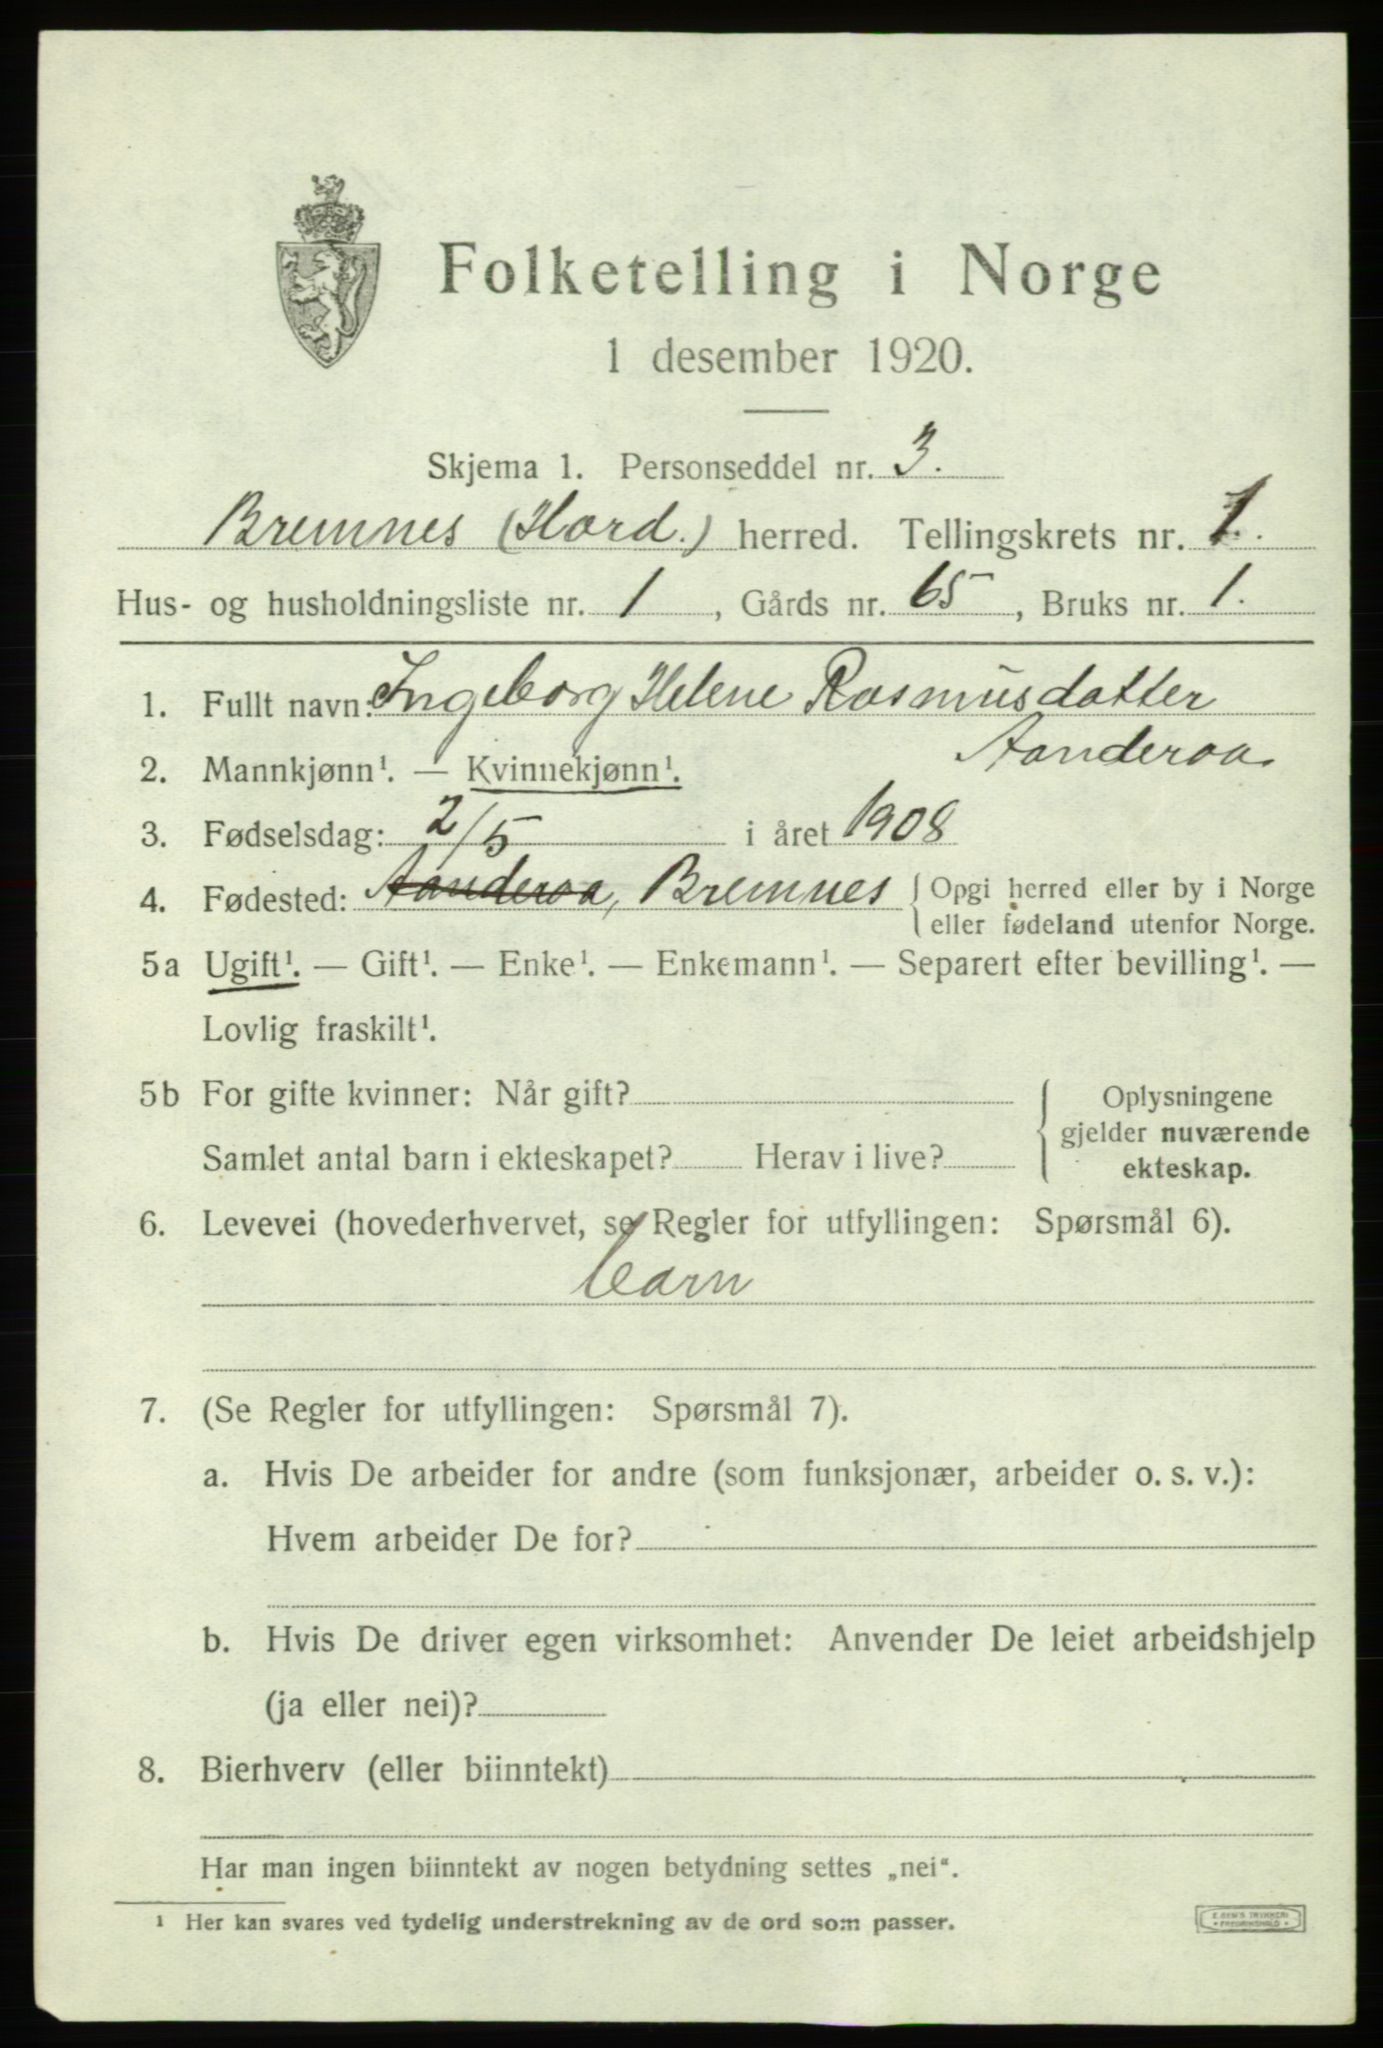 Folketelling i Norge
1 desember 1920.
Skjema 1. Personseddel nr. 3.
Bremnes (Hord.) herred. Tellingskrets nr. 1.
Hus- og husholdningsliste nr. 1, Gårds nr. 65, Bruks nr. 1.
1. Fullt navn: Ingeborg Helene Rasmusdatter
Aanderaa.
2. Mannkjønn¹. — Kvinnekjønn¹.
3. Fødselsdag: 2/5 i året 1908
4. Fødested: Aanderaa, Bremnes { Opgi herred eller by i Norge
eller fødeland utenfor Norge.
5a Ugift¹. — Gift¹. — Enke¹. — Enkemann¹. — Separert efter bevilling¹. —
Lovlig fraskilt¹.
5b For gifte kvinner: Når gift?
Samlet antal barn i ekteskapet? Herav i live?
Oplysningene
gjelder nuværende
ekteskap.
6. Levevei (hovederhvervet, se Regler for utfyllingen: Spørsmål 6).
barn
7. (Se Regler for utfyllingen: Spørsmål 7).
a. Hvis De arbeider for andre (som funksjonær, arbeider o. s. v.):
Hvem arbeider De for?
b. Hvis De driver egen virksomhet: Anvender De leiet arbeidshjelp
(ja eller nei)?
8. Bierhverv (eller biinntekt)
Har man ingen biinntekt av nogen betydning settes „nei“.
¹ Her kan svares ved tydelig understrekning av de ord som passer.
E. SEM'S TRYKKERI
• FREDRIKSHALD •